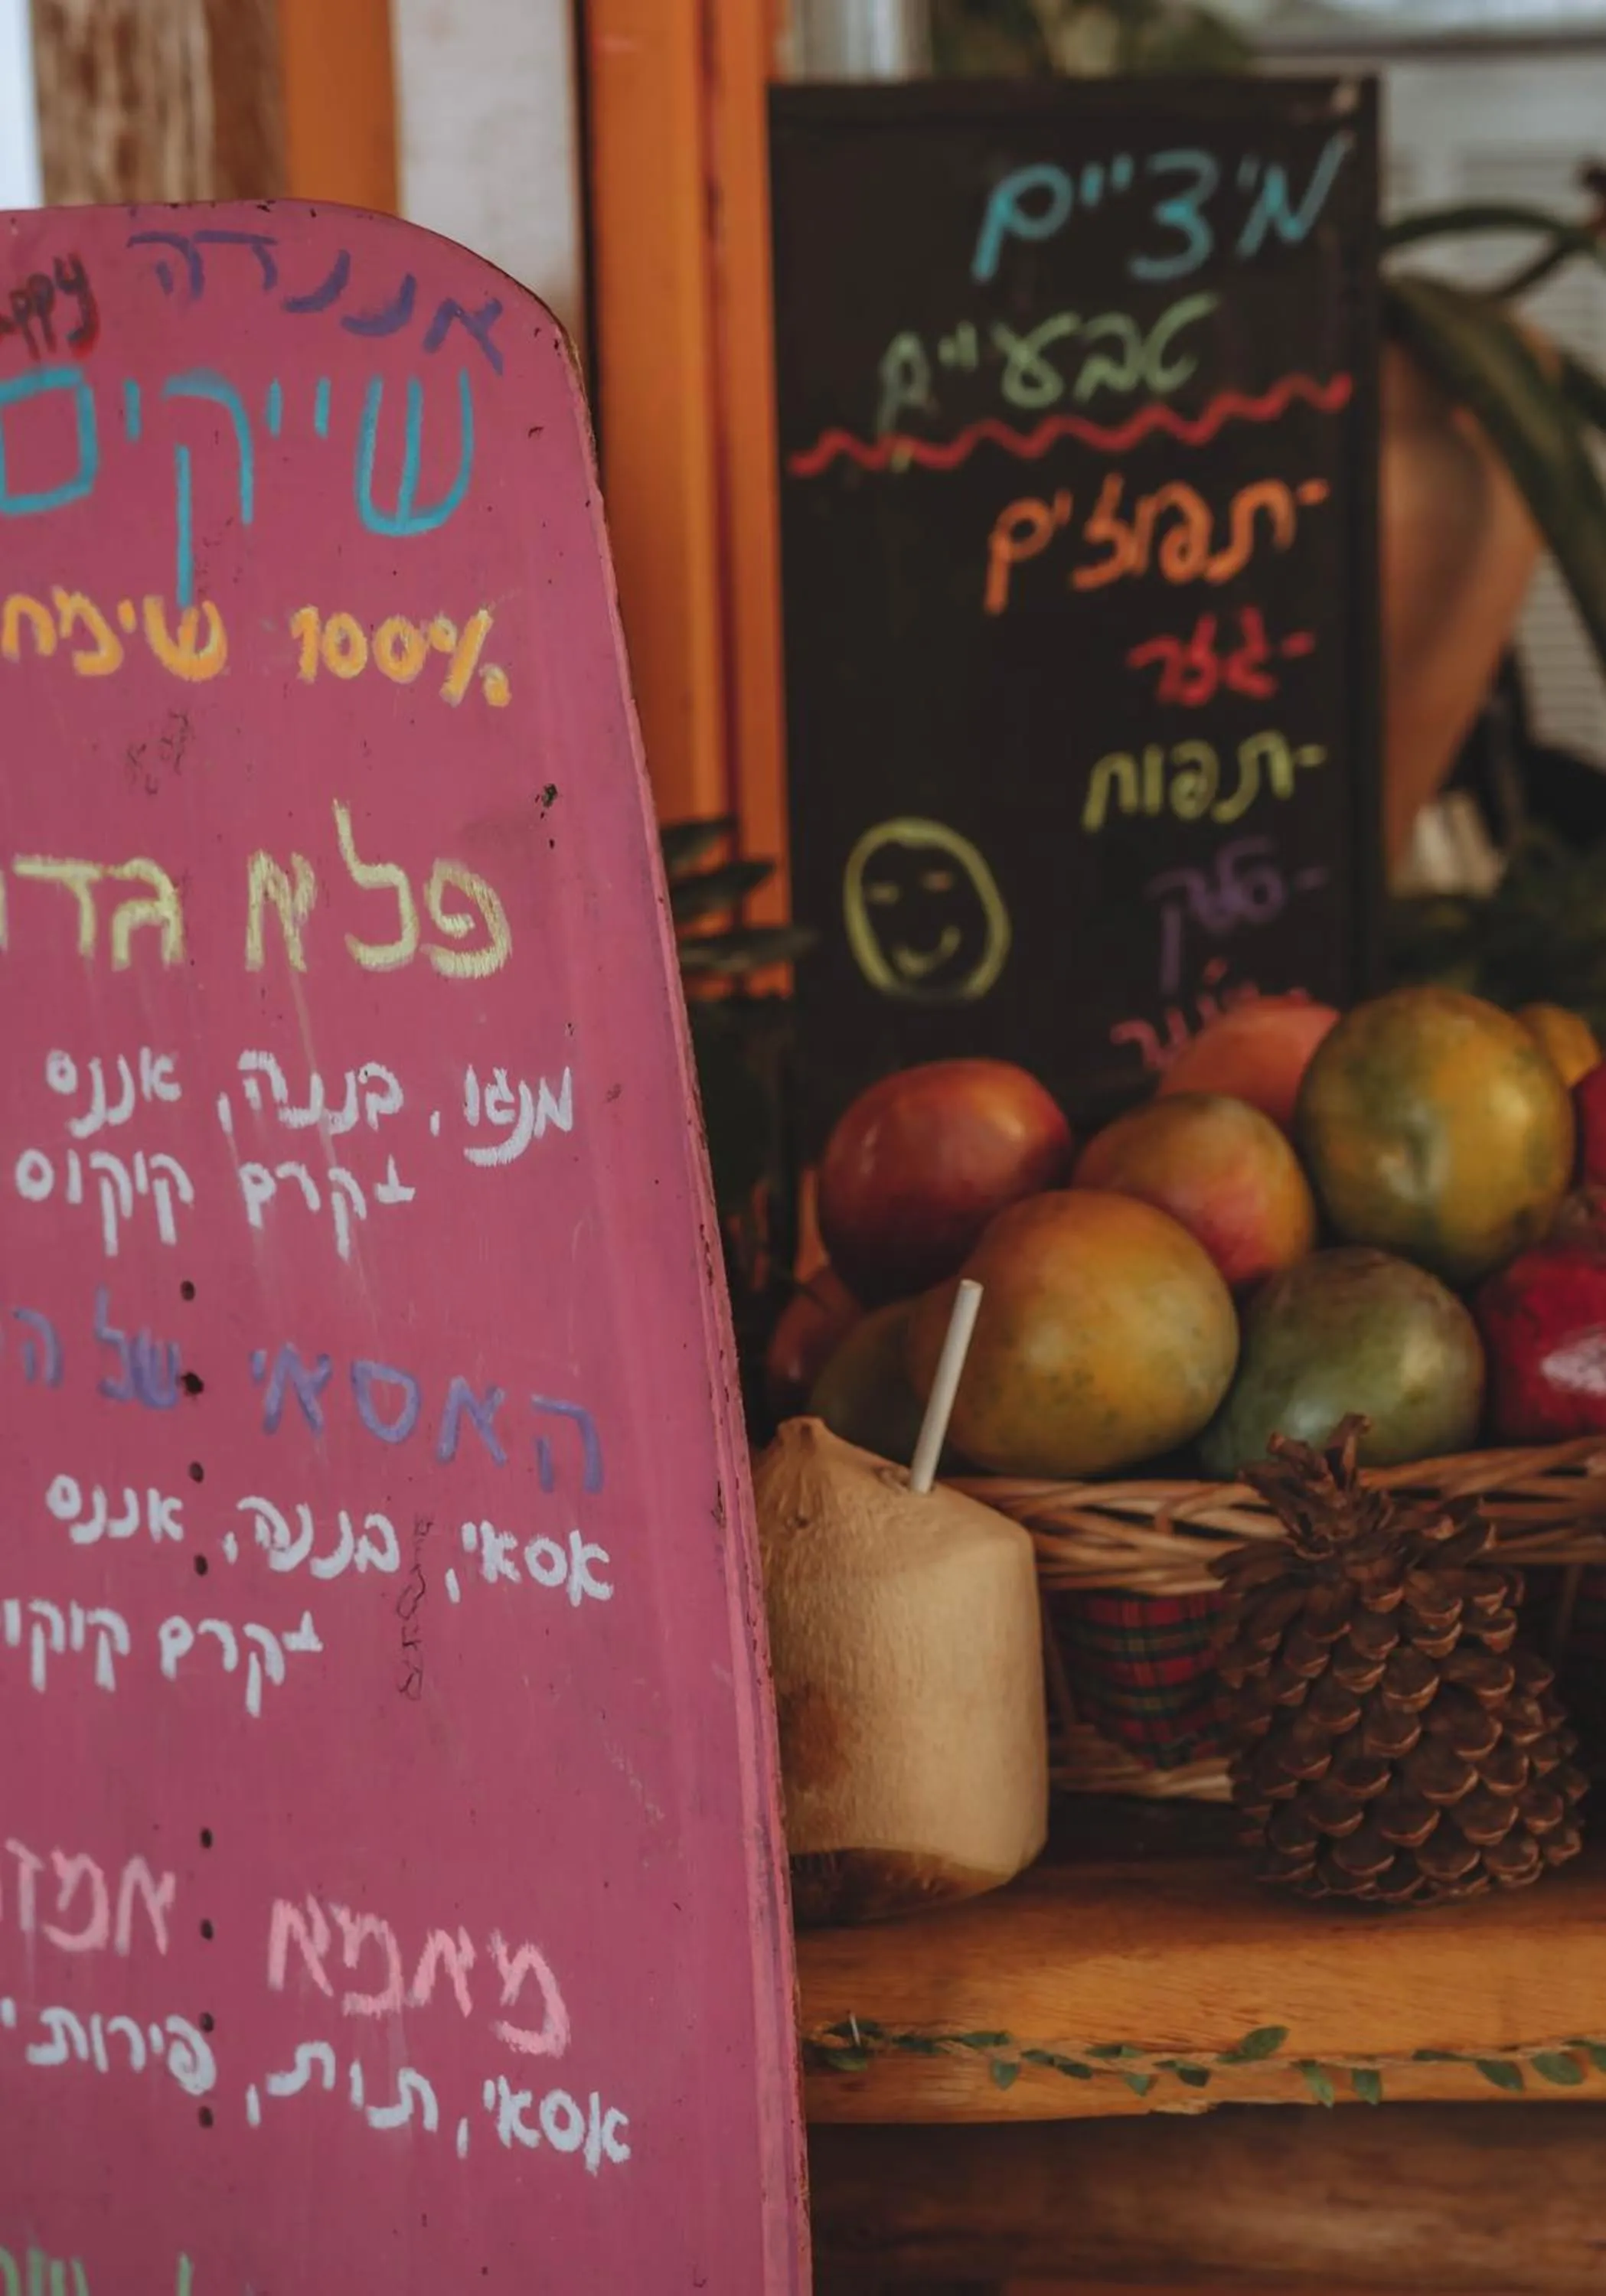 אננדה
שייקים
100% שימח
פלא גדו
מנגו, בננה, אננס
+קרם קוקוס
האסאי של הי
אסאי, בננה, אננס
+קרם קוקו
מאמא אמז
אסאי, תות, פירות י
מיציים
טבעיים
-תפוזים
-גזר
-תפוח
-סלק